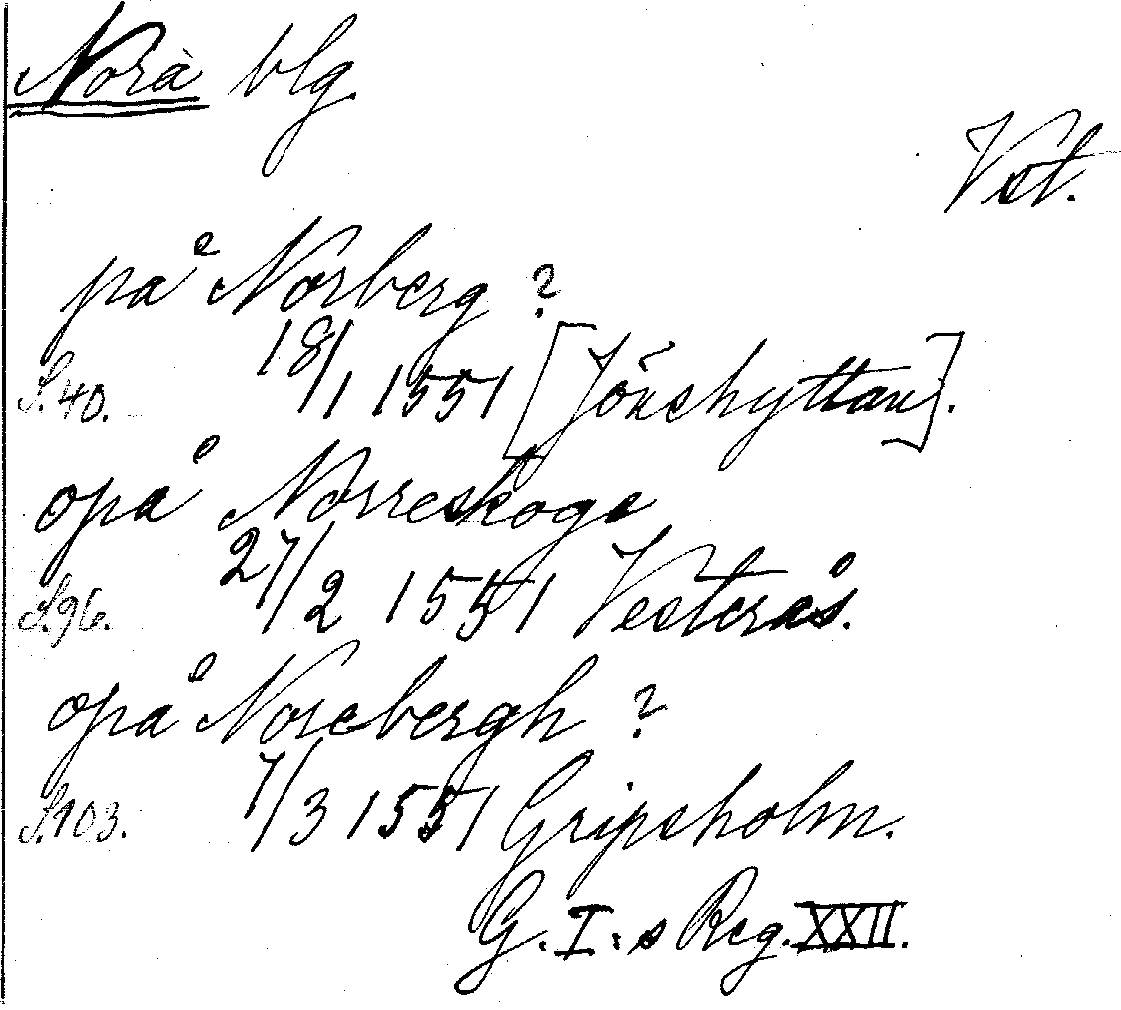 Nora blg
Vst.
på Norberg ?
S. 40. 18/1 1551 [Jönshyttan].
opå Norreskoge
S. 96. 27/2 1551 Vesterås.
opå Norebergh ?
S. 103. 7/3 1551 Gripsholm.
G. I:s Reg. XXII.